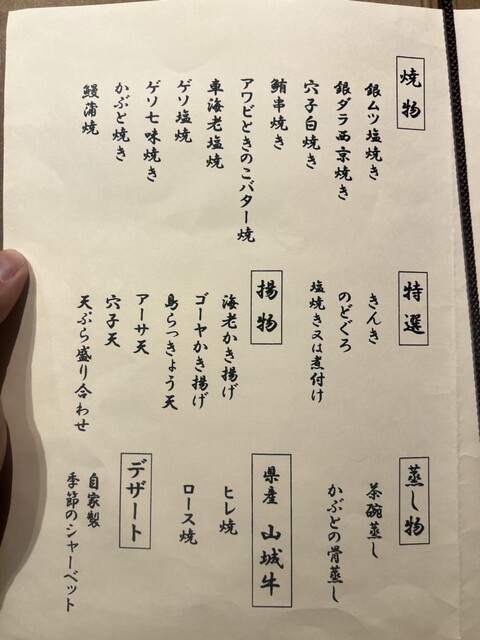 焼物
銀ムツ塩焼き
銀ダラ西京焼き
穴子白焼き
鮪串焼き
アワビときのこバター焼
車海老塩焼
ゲソ塩焼
ゲソ七味焼き
かぶと焼き
鰻蒲焼
特選
きんき
のどぐろ
塩焼き又は煮付け
揚物
海老かき揚げ
ゴーヤかき揚げ
島らっきょう天
アーサ天
穴子天
天ぷら盛り合わせ
蒸し物
茶碗蒸し
かぶとの骨蒸し
県産 山城牛
ヒレ焼
ロース焼
デザート
自家製
季節のシャーベット